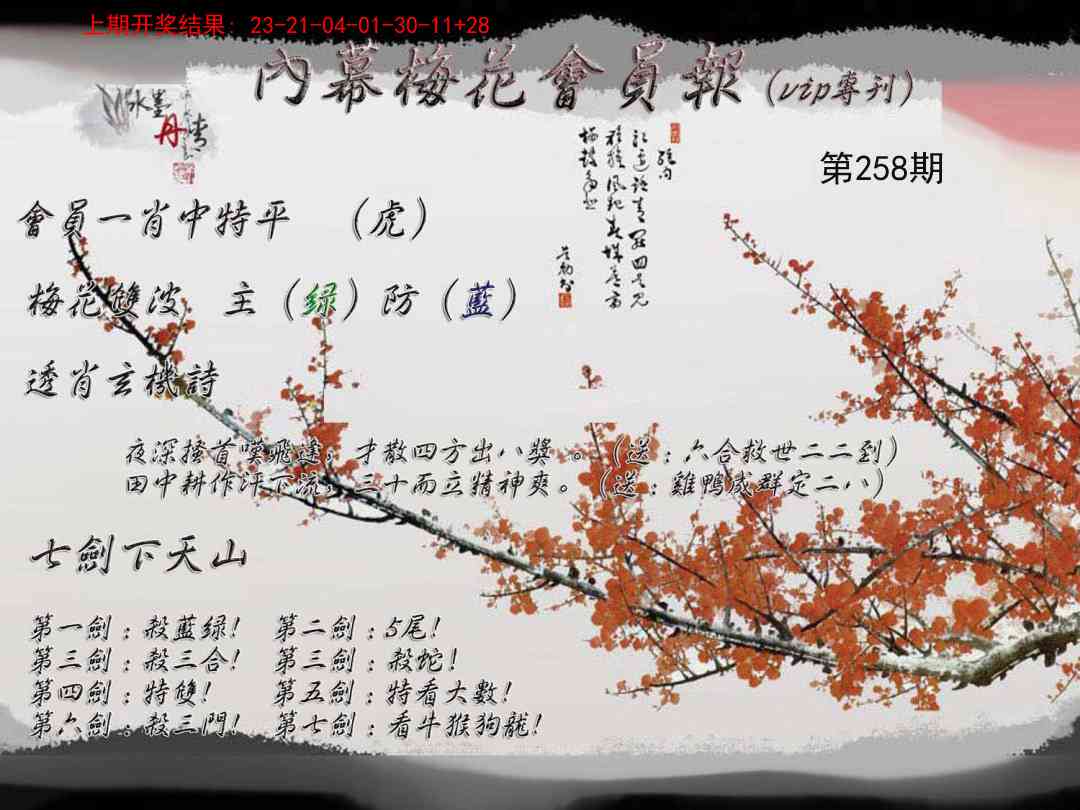 上期开奖结果: 23-21-04-01-30-11+28
內幕梅花會員報(vip專刊)
水墨
丹青
第258期
會員一肖中特平 (虎)
梅花雙波 主(绿)防(藍)
透肖玄機詩
夜深搔首嘆飛逢，才散四方出八獎。(送:六合救世二二到)
田中耕作汗下流，三十而立精神爽。(送:雞鴨成群定二八)
七劍下天山
第一劍:殺藍绿! 第二劍:5尾!
第三劍:殺三合! 第三劍:殺蛇!
第四劍:特雙! 第五劍:特看大數!
第六劍:殺三門! 第七劍:看牛猴狗龍!